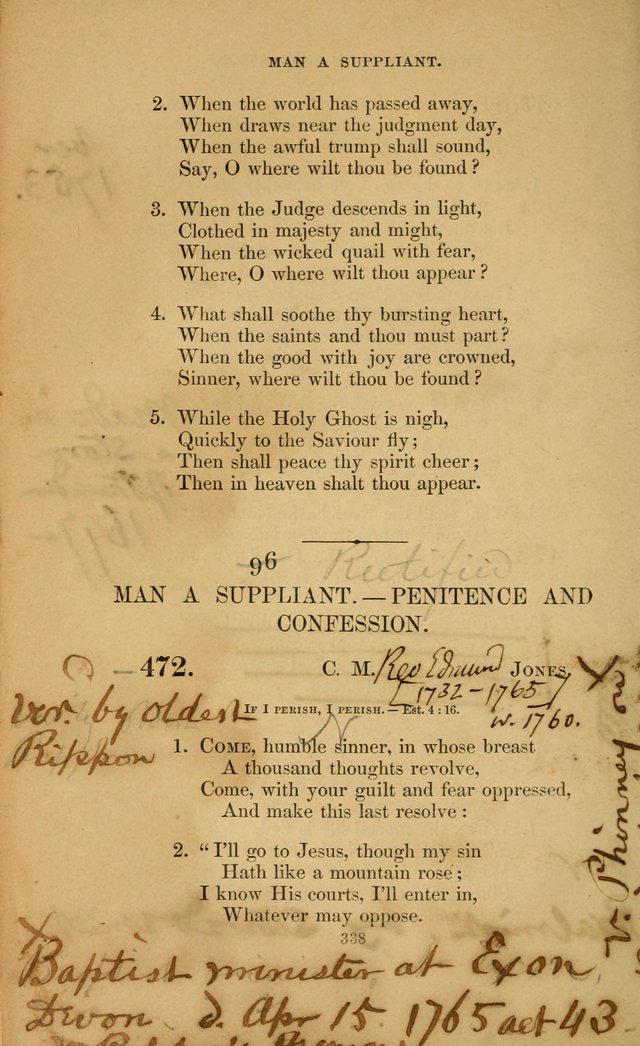 MAN A SUPPLIANT.
2. When the world has passed away,
When draws near the judgment day,
When the awful trump shall sound,
Say, O where wilt thou be found?
3. When the Judge descends in light,
Clothed in majesty and might,
When the wicked quail with fear,
Where, O where wilt thou appear?
4. What shall soothe thy bursting heart,
When the saints and thou must part?
When the good with joy are crowned,
Sinner, where wilt thou be found?
5. While the Holy Ghost is nigh,
Quickly to the Saviour fly;
Then shall peace thy spirit cheer;
Then in heaven shalt thou appear.
96 Rectified
MAN A SUPPLIANT.—PENITENCE AND
CONFESSION.
472. C. M. Rev Edmund JONES.
[1732-1765]
IF I PERISH, I PERISH.—Est. 4:16.
w. 1760.
Ver. by oldest
Rippon
1. COME, humble sinner, in whose breast
A thousand thoughts revolve,
Come, with your guilt and fear oppressed,
And make this last resolve:
2. "I'll go to Jesus, though my sin
Hath like a mountain rose;
I know His courts, I'll enter in,
Whatever may oppose.
338
v. Phinney
X
Baptist minister at Exon
Devon d. Apr 15. 1765 aet 43